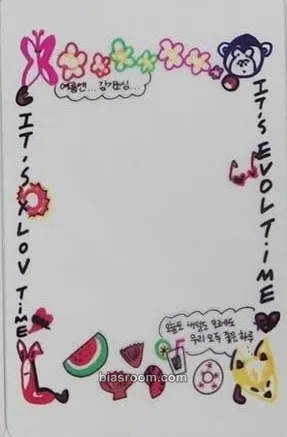 여름엔... 감기조심...
IT'S XLOV TiME
IT'S EVOLTiME
오늘도 내일도 모레도
우리 모두 좋은 하루
biasroom.com